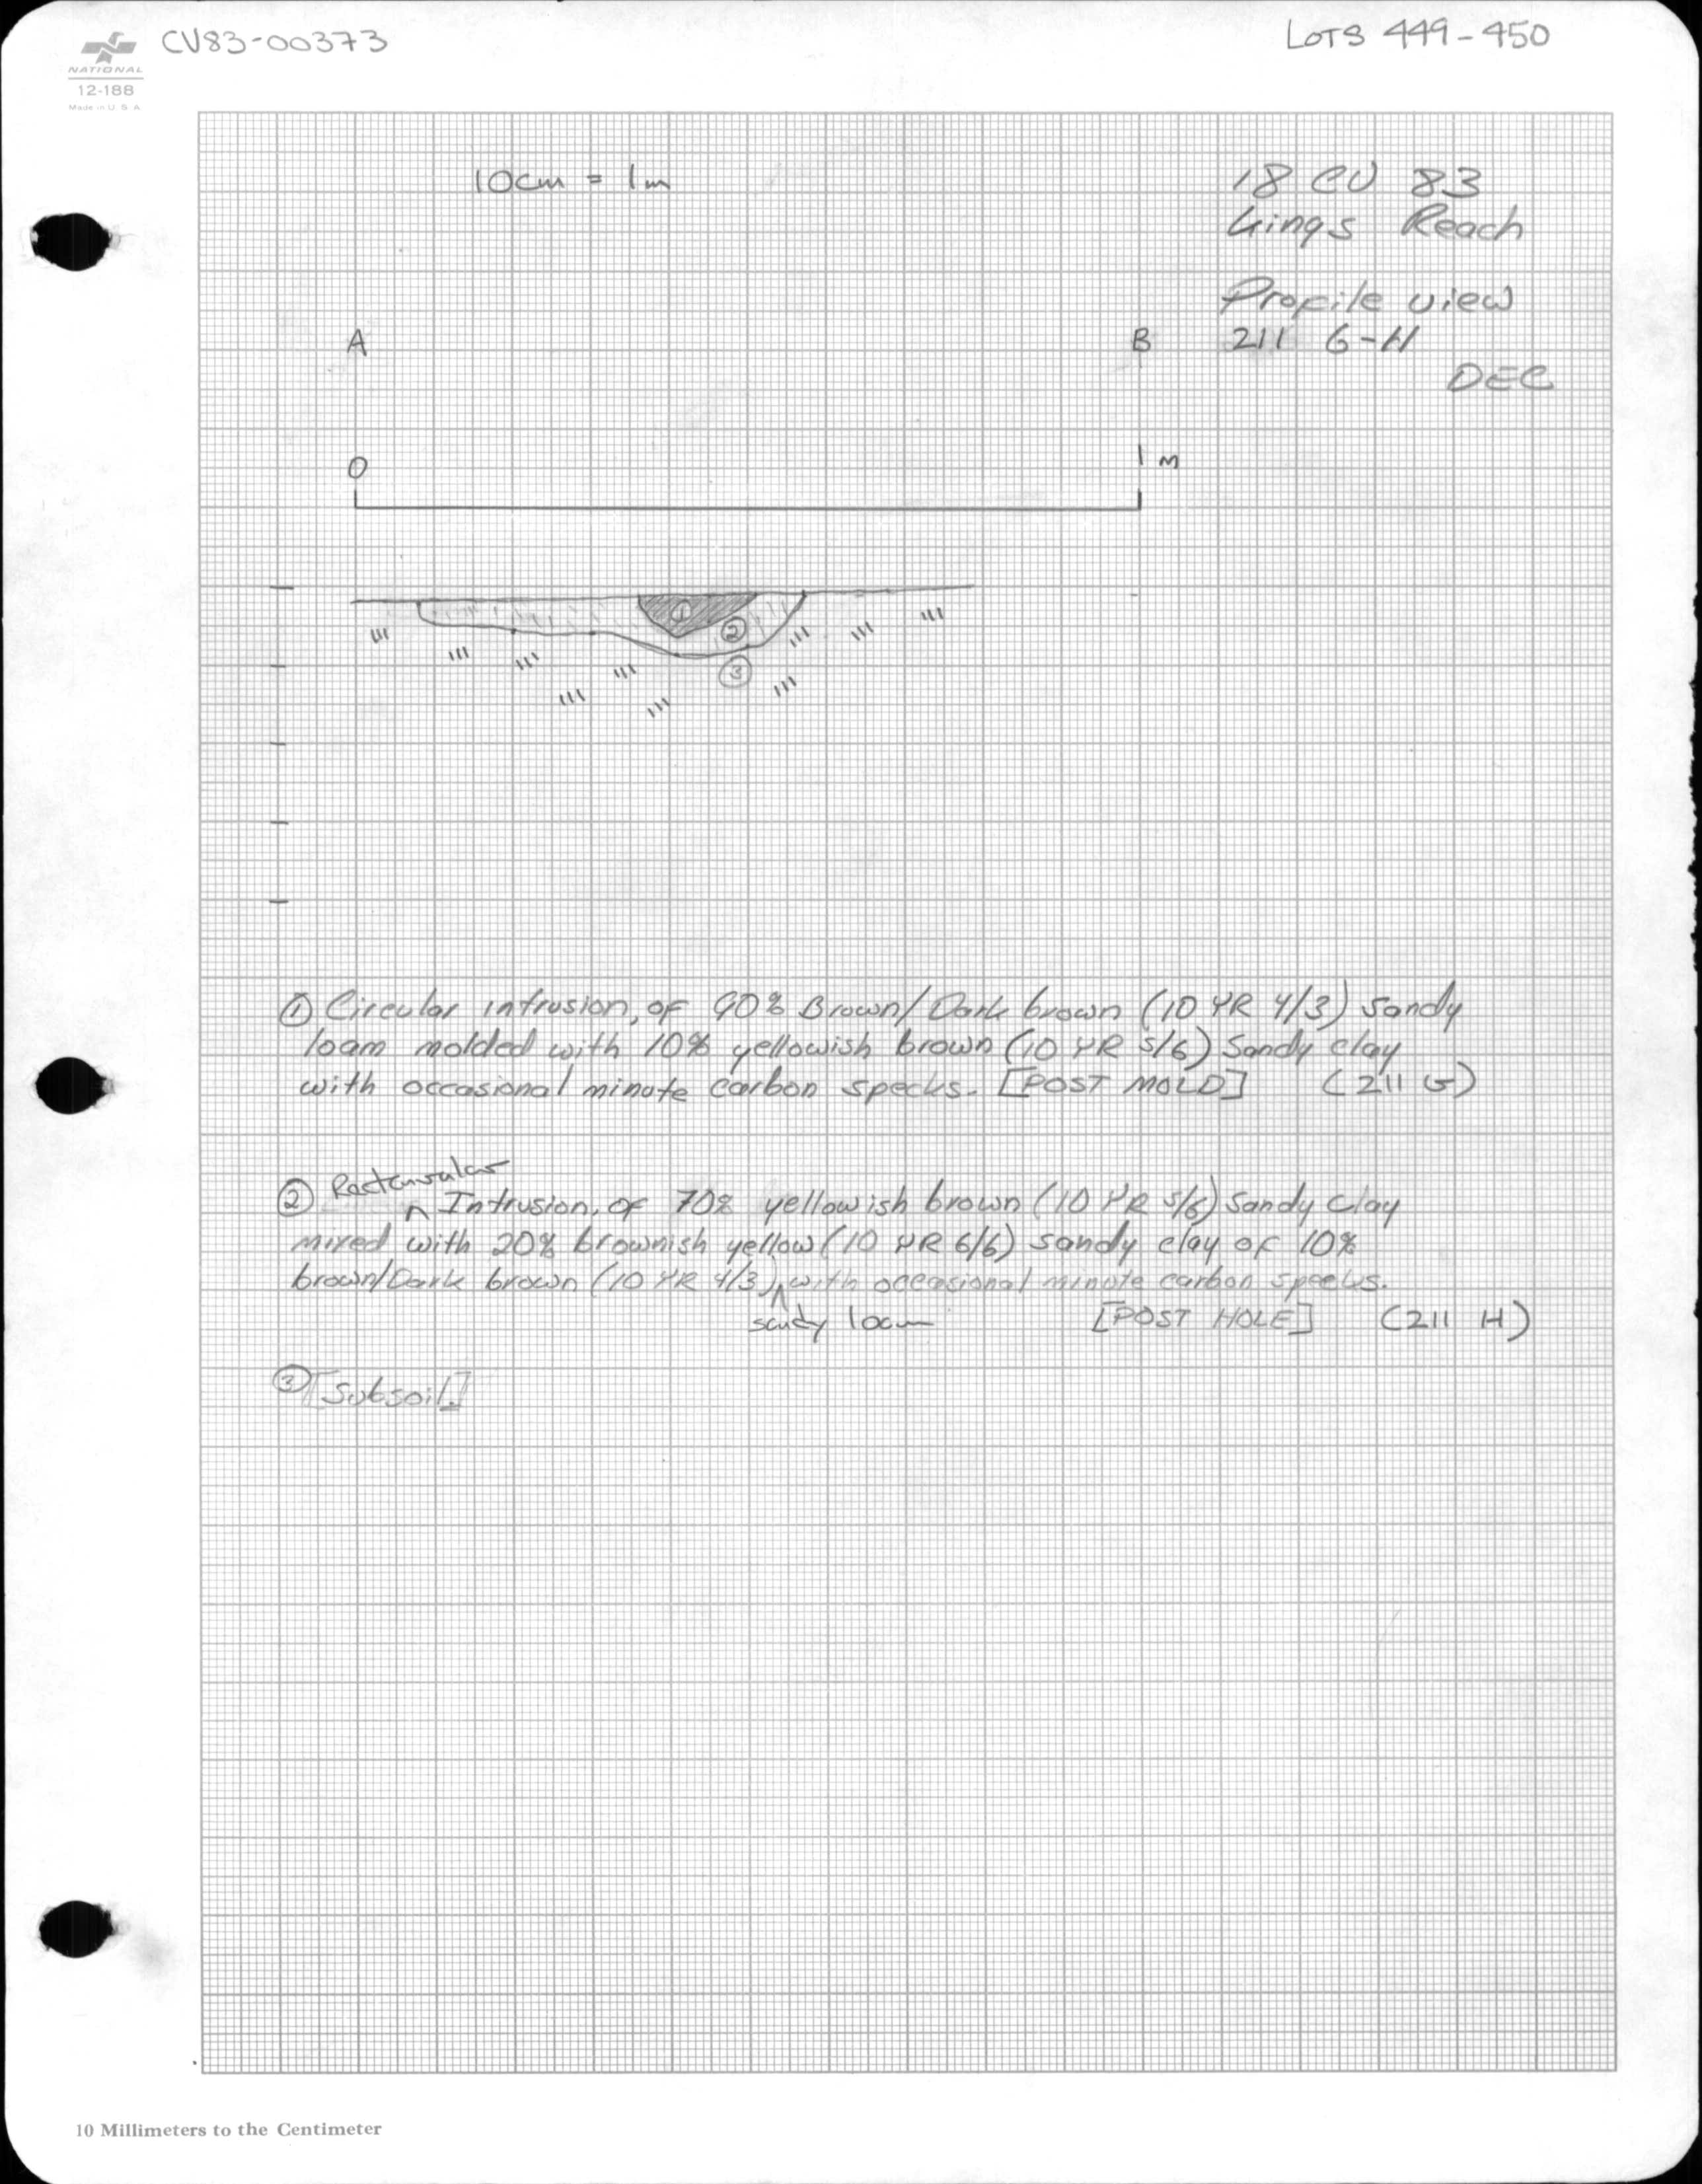 CV83-00373
LOTS 449-450
NATIONAL
12-188
Made in U. S. A.
10cm = 1m
18 CV 83
Kings Reach
Profile view
211 G-H
DEC
A
B
0
1 m
1
2
3
① Circular intrusion, of 90% Brown/Dark brown (10 YR 4/3) Sandy
loam molded with 10% yellowish brown (10 YR 5/6) Sandy clay
with occasional minute carbon specks. [POST MOLD] (211 G)
Rectangular
② ^ Intrusion, of 70% yellowish brown (10 YR 5/6) Sandy Clay
mixed with 20% brownish yellow (10 YR 6/6) sandy clay of 10%
brown/Dark brown (10 YR 4/3) ^ with occasional minute carbon specks.
sandy loam [POST HOLE] (211 H)
③ [Subsoil.]
10 Millimeters to the Centimeter